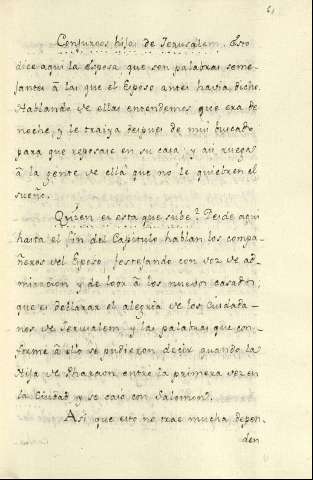 Conjuroos hijas de Jerusalem. Esto
dice aqui la Esposa que son palabras seme-
jantes â las que el Esposo antes havia dicho.
Hablando de ellas entendemos que era de
noche, y le traiya despues de mui buscado,
para que reposase en su casa, y asi ruega
â la gente de ella que no le quiebren el
sueño.
Quien es esta que sube? Desde aqui
hasta el fin del Capitulo hablan los compa-
ñeros del Esposo, festejando con voz de ad-
miracion y de loor â los nuevos casados,
que es declarar el alegria de los Ciudada-
nos de Jerusalem, y las palabras que con-
forme â ello se pudieron decir quando la
Hija de Pharaon entrò la primera vez en
la Ciudad y se casò con Salomon.
Asi que esto no trae mucha depen-
den